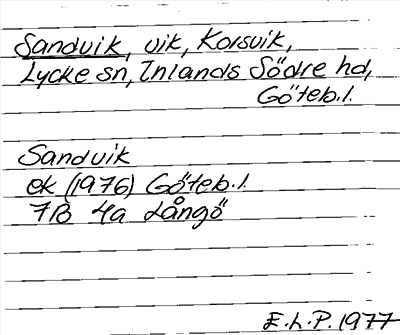 Sandvik, vik, Korsvik,
Lycke sn, Inlands Södre hd,
Göteb.l.
Sandvik
ek (1976) Göteb.l.
7B 4a Långö
E.L.P. 1977